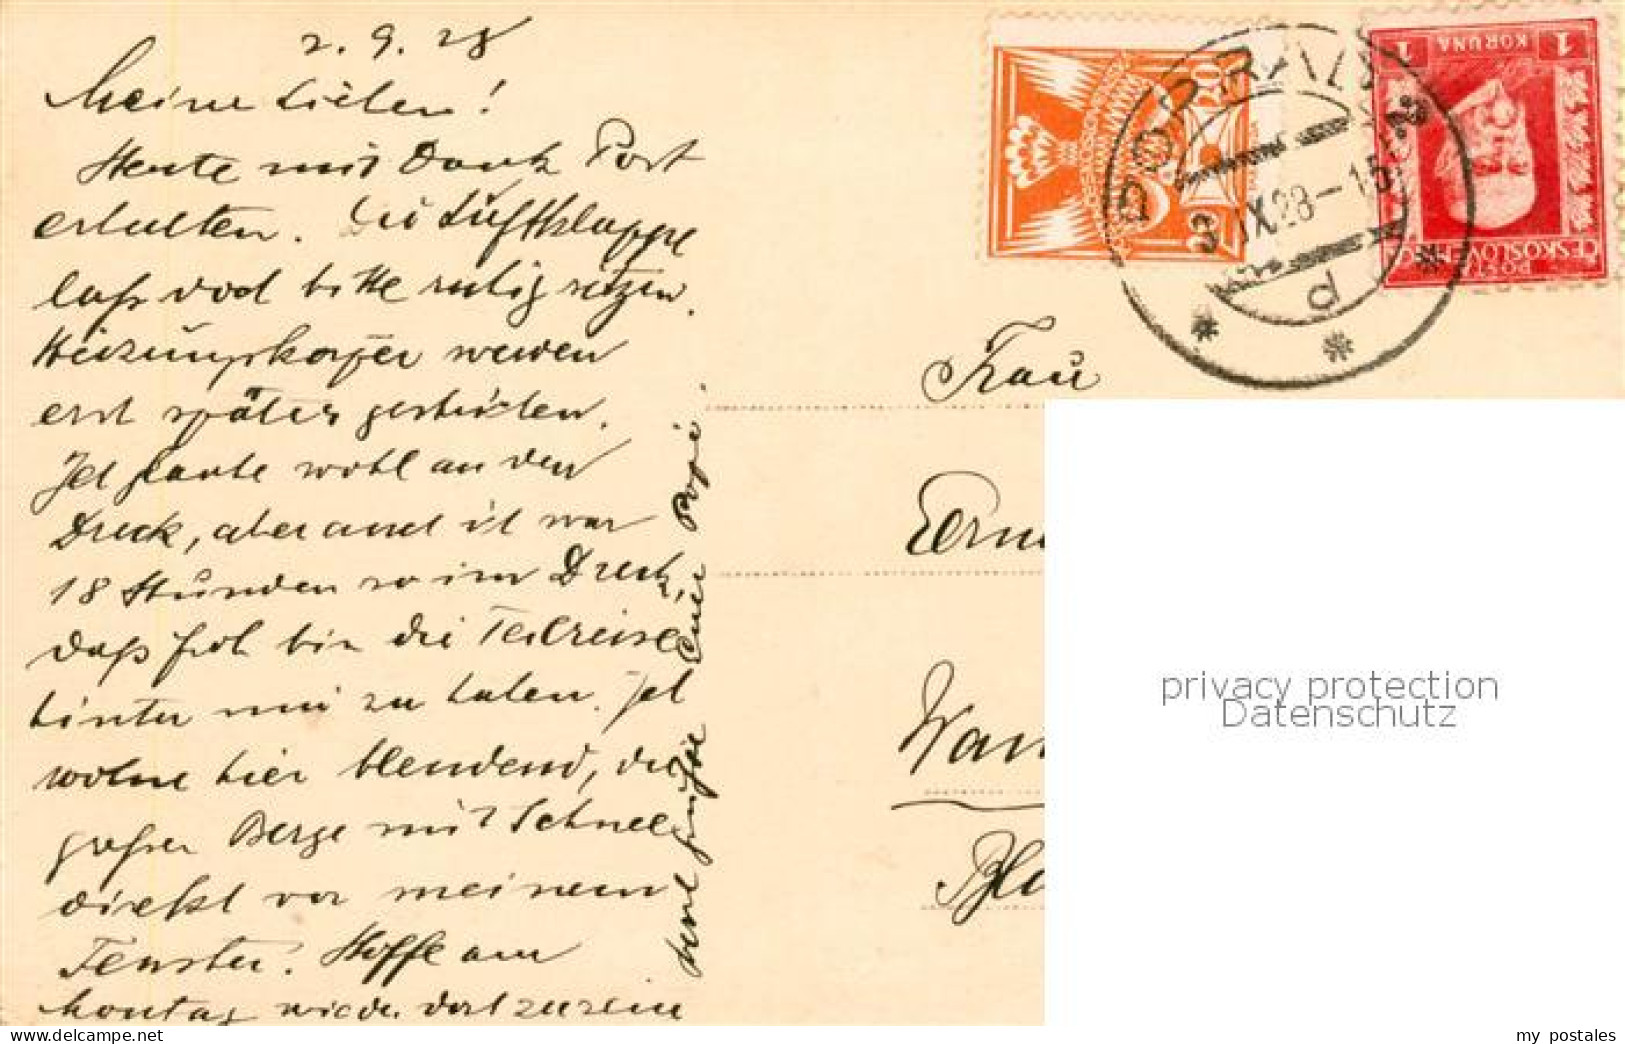 2. 9. 28
Meine Lieben!
Heute mit Dank Post
erhalten. Die Luftklappe
laß dod bitte ruhig setzen.
Heizungskörper werden
erst später gestrichen.
Ich glaube wohl an den
Dreck, aber auch ich war
18 Stunden so im Dreck,
daß froh bin die Teilreise
hinter mir zu haben. Ich
wohne hier blendend, die
großen Berge mit Schnee
direkt vor meinem
Fenster. Hoffe am
Montag wieder dort zu sein
Euer Papi
POPRAD 2
3 IX 28 - 15
d
1 KORUNA 1
POŠTA
ČESKOSLOVENSKÁ
Frau
privacy protection
Datenschutz
my postales